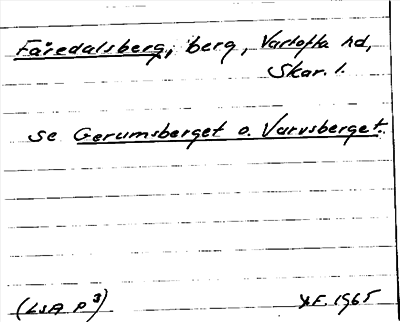 Fåredalsberg, berg, Vartofta hd,
Skar. l.
se Gerumsberget o. Varvsberget.
(LSA P³) F. 1965